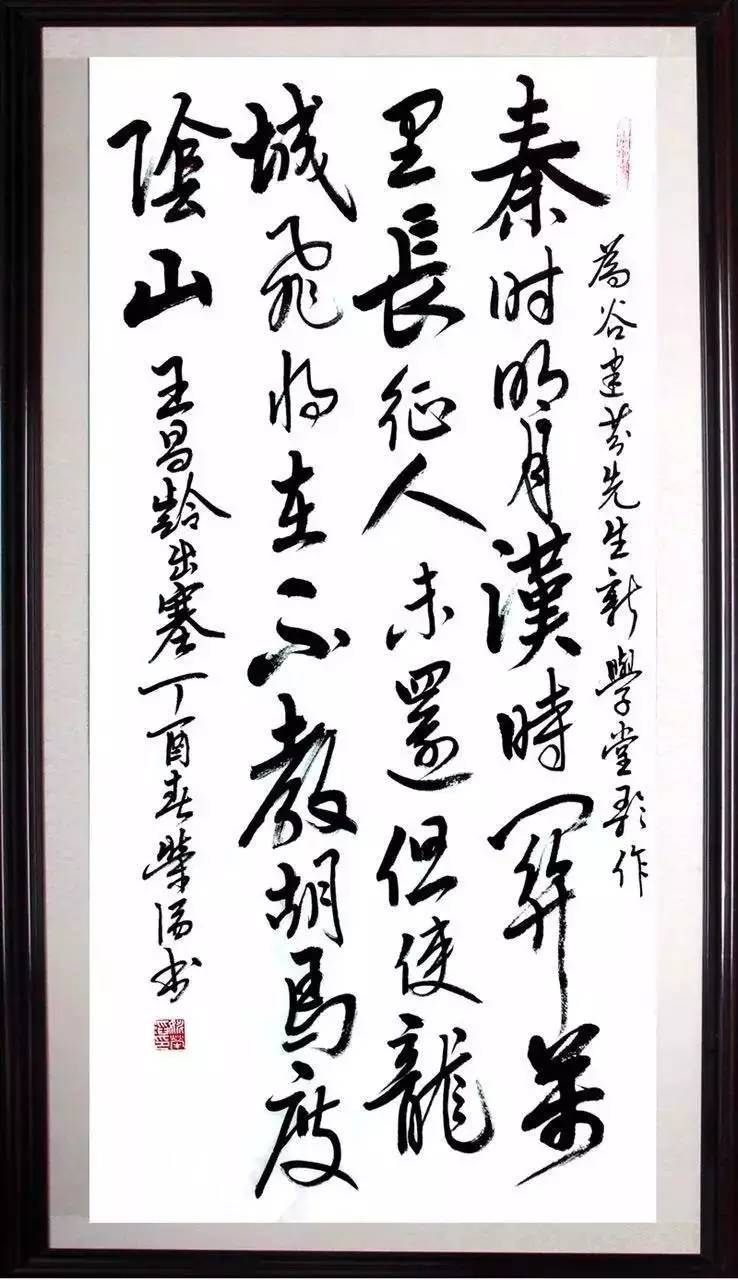 為谷建芬先生新學堂歌作
秦时明月漢時関萬
里長征人未還但使龍
城飛将在不教胡馬度
陰山
王昌齡出塞丁酉春榮滔书